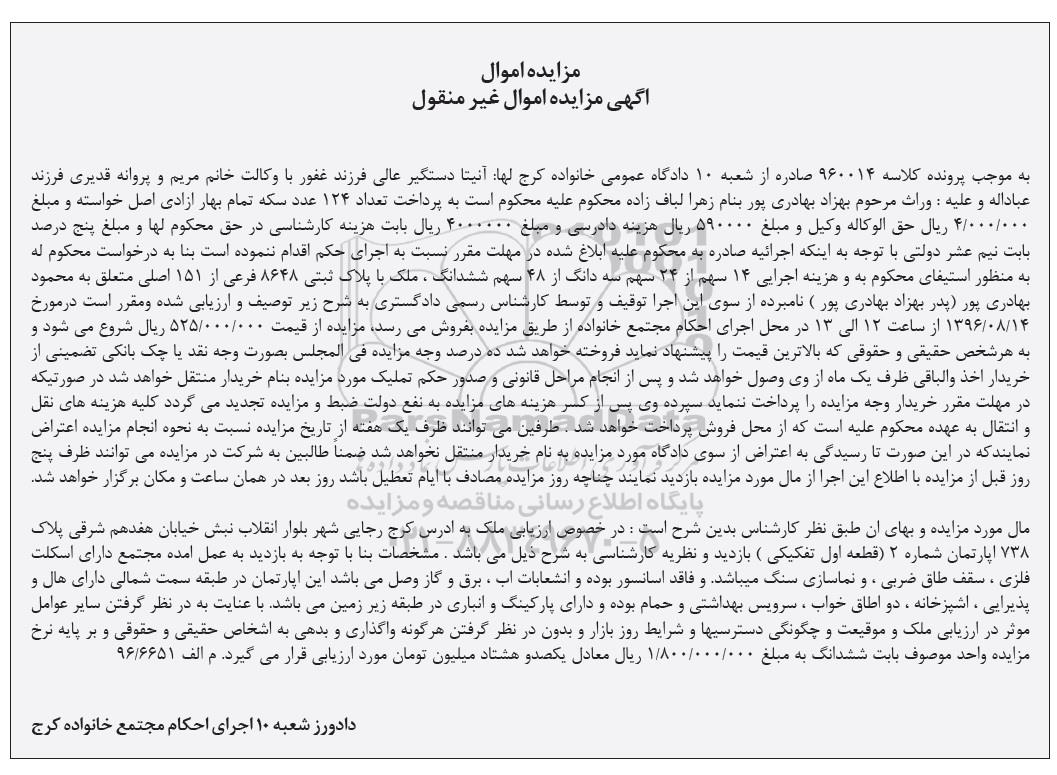 مزایده اموال
اگهی مزایده اموال غیر منقول
به موجب پرونده کلاسه ۹۶۰۰۱۴ صادره از شعبه ۱۰ دادگاه عمومی خانواده کرج لها: آنیتا دستگیر عالی فرزند غفور با وکالت خانم مریم و پروانه قدیری فرزند
عباداله و علیه : وراث مرحوم بهزاد بهادری پور بنام زهرا لباف زاده محکوم علیه محکوم است به پرداخت تعداد ۱۲۴ عدد سکه تمام بهار ازادی اصل خواسته و مبلغ
۴/۰۰۰/۰۰۰ ریال حق الوکاله وکیل و مبلغ ۵۹۰۰۰۰ ریال هزینه دادرسی و مبلغ ۴۰۰۰۰۰۰ ریال بابت هزینه کارشناسی در حق محکوم لها و مبلغ پنج درصد
بابت نیم عشر دولتی با توجه به اینکه اجرائیه صادره به محکوم علیه ابلاغ شده در مهلت مقرر نسبت به اجرای حکم اقدام ننموده است بنا به درخواست محکوم له
به منظور استیفای محکوم به و هزینه اجرایی ۱۴ سهم از ۲۴ سهم سه دانگ از ۴۸ سهم ششدانگ ، ملک با پلاک ثبتی ۸۶۴۸ فرعی از ۱۵۱ اصلی متعلق به محمود
بهادری پور (پدر بهزاد بهادری پور ) نامبرده از سوی این اجرا توقیف و توسط کارشناس رسمی دادگستری به شرح زیر توصیف و ارزیابی شده ومقرر است درمورخ
۱۳۹۶/۰۸/۱۴ از ساعت ۱۲ الی ۱۳ در محل اجرای احکام مجتمع خانواده از طریق مزایده بفروش می رسد، مزایده از قیمت ۵۲۵/۰۰۰/۰۰۰ ریال شروع می شود و
به هرشخص حقیقی و حقوقی که بالاترین قیمت را پیشنهاد نماید فروخته خواهد شد ده درصد وجه مزایده فی المجلس بصورت وجه نقد یا چک بانکی تضمینی از
خریدار اخذ والباقی ظرف یک ماه از وی وصول خواهد شد و پس از انجام مراحل قانونی و صدور حکم تملیک مورد مزایده بنام خریدار منتقل خواهد شد در صورتیکه
در مهلت مقرر خریدار وجه مزایده را پرداخت ننماید سپرده وی پس از کسر هزینه های مزایده به نفع دولت ضبط و مزایده تجدید می گردد کلیه هزینه های نقل
و انتقال به عهده محکوم علیه است که از محل فروش پرداخت خواهد شد . طرفین می توانند ظرف یک هفته از تاریخ مزایده نسبت به نحوه انجام مزایده اعتراض
نمایندکه در این صورت تا رسیدگی به اعتراض از سوی دادگاه مورد مزایده به نام خریدار منتقل نخواهد شد ضمناً طالبین به شرکت در مزایده می توانند ظرف پنج
روز قبل از مزایده با اطلاع این اجرا از مال مورد مزایده بازدید نمایند چناچه روز مزایده مصادف با ایام تعطیل باشد روز بعد در همان ساعت و مکان برگزار خواهد شد.
مال مورد مزایده و بهای ان طبق نظر کارشناس بدین شرح است : در خصوص ارزیابی ملک به ادرس کرج رجایی شهر بلوار انقلاب نبش خیابان هفدهم شرقی پلاک
۷۳۸ اپارتمان شماره ۲ (قطعه اول تفکیکی ) بازدید و نظریه کارشناسی به شرح ذیل می باشد . مشخصات بنا با توجه به بازدید به عمل امده مجتمع دارای اسکلت
فلزی ، سقف طاق ضربی ، و نماسازی سنگ میباشد. و فاقد اسانسور بوده و انشعابات اب ، برق و گاز وصل می باشد این اپارتمان در طبقه سمت شمالی دارای هال و
پذیرایی ، اشپزخانه ، دو اطاق خواب ، سرویس بهداشتی و حمام بوده و دارای پارکینگ و انباری در طبقه زیر زمین می باشد. با عنایت به در نظر گرفتن سایر عوامل
موثر در ارزیابی ملک و موقیعت و چگونگی دسترسیها و شرایط روز بازار و بدون در نظر گرفتن هرگونه واگذاری و بدهی به اشخاص حقیقی و حقوقی و بر پایه نرخ
مزایده واحد موصوف بابت ششدانگ به مبلغ ۱/۸۰۰/۰۰۰/۰۰۰ ریال معادل یکصدو هشتاد میلیون تومان مورد ارزیابی قرار می گیرد. م الف ۹۶/۶۶۵۱
دادورز شعبه ۱۰ اجرای احکام مجتمع خانواده کرج
ParsNamadData
پایگاه اطلاع رسانی مناقصه و مزایده
۰۲۱-۸۸۳۴۹۶۷۰-۵